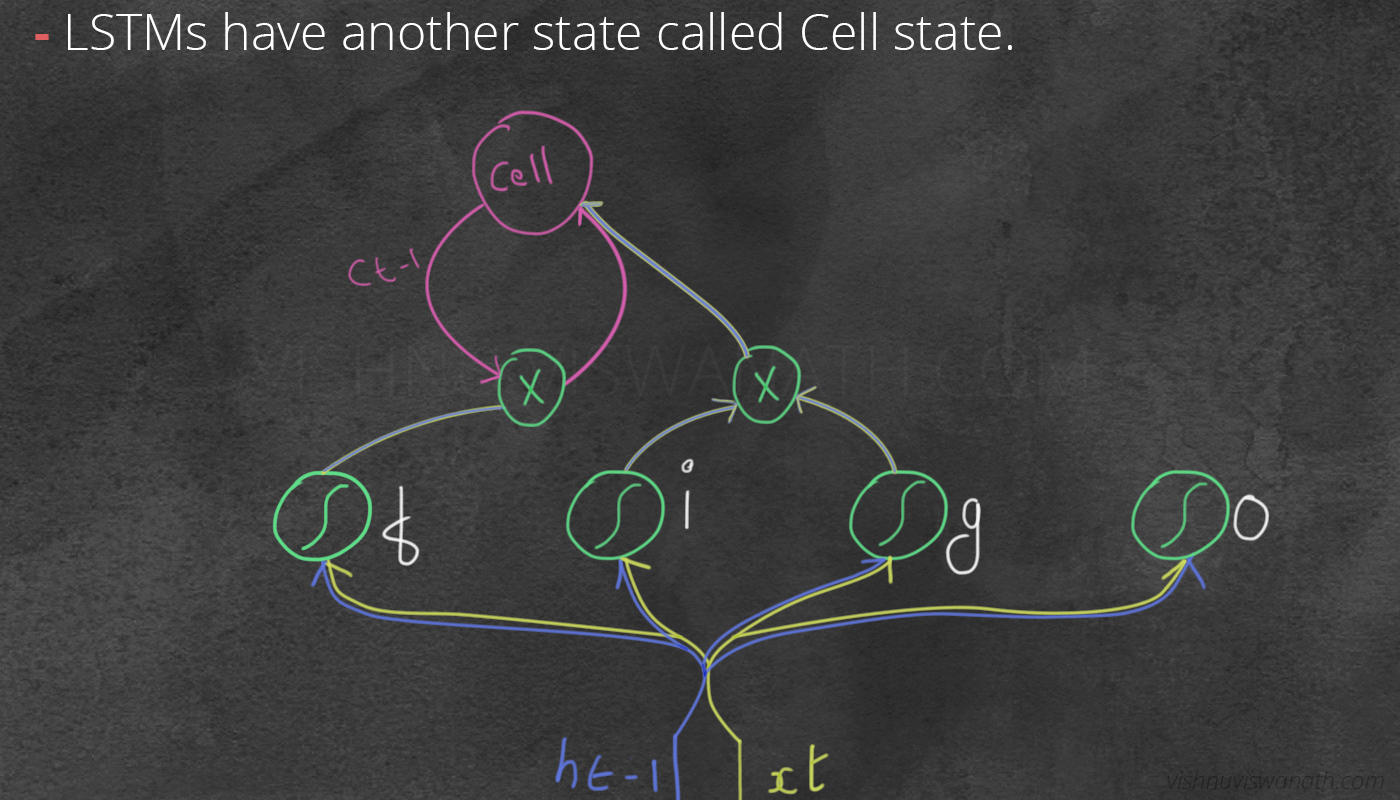 - LSTMs have another state called Cell state.
Cell
Ct-1
X X
f i g o
ht-1 xt
vishnuviswanath.com